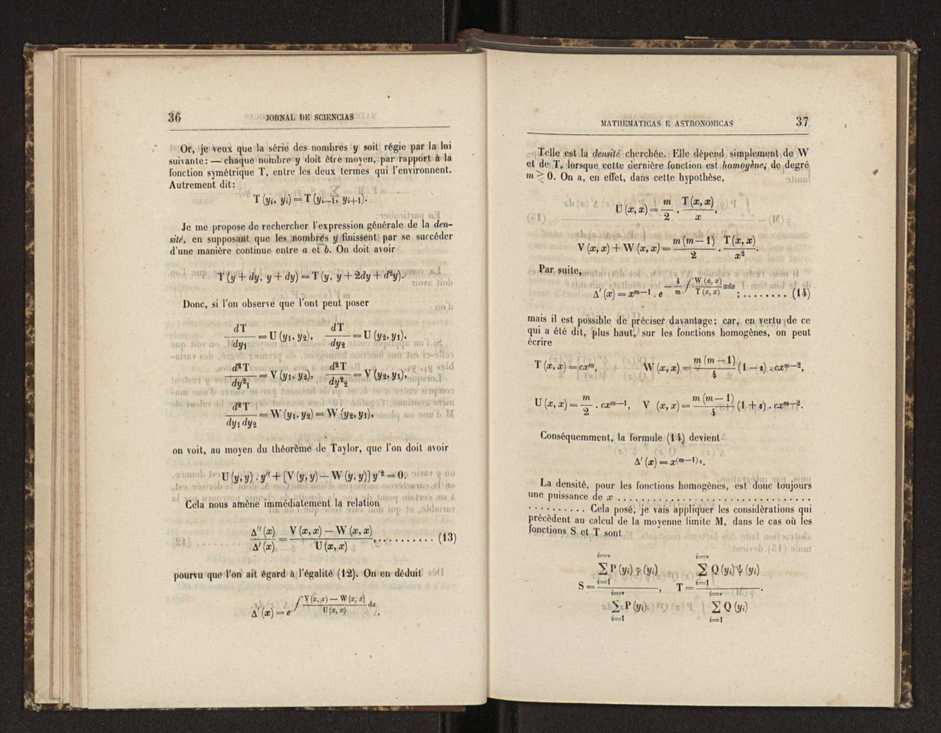 36
JORNAL DE SCIENCIAS
Or, je veux que la série des nombres y soit régie par la loi
suivante: — chaque nombre y doit être moyen, par rapport à la
fonction symétrique T, entre les deux termes qui l'environnent.
Autrement dit:
T (yᵢ, yᵢ) = T (yᵢ₋₁, yᵢ₊₁).
Je me propose de rechercher l'expression générale de la den-
sité, en supposant que les nombres y finissent par se succéder
d'une manière continue entre a et b. On doit avoir
T (y + dy, y + dy) = T (y, y + 2dy + d²y).
Donc, si l'on observe que l'ont peut poser
dT/dy₁ = U (y₁, y₂), dT/dy₂ = U (y₂, y₁),
d²T/dy²₁ = V (y₁, y₂), d²T/dy²₂ = V (y₂, y₁),
d²T/dy₁ dy₂ = W (y₁, y₂) = W (y₂, y₁),
on voit, au moyen du théorème de Taylor, que l'on doit avoir
U (y, y) . y'' + [V (y, y) — W (y, y)] y'² = 0.
Cela nous amène immédiatement la relation
Δ'' (x)/Δ' (x) = V (x, x) — W (x, x)/U (x, x) , . . . . . . . . . . (13)
pourvu que l'on ait égard à l'égalité (12). On en déduit
Δ' (x) = e^∫ V (x, x) — W (x, x)/U (x, x) dx.
MATHEMATICAS E ASTRONOMICAS
37
Telle est la densité cherchée. Elle dépend simplement de W
et de T, lorsque cette dernière fonction est homogène, de degré
m ≧ 0. On a, en effet, dans cette hypothèse,
U (x, x) = m/2 . T (x, x)/x,
V (x, x) + W (x, x) = m (m — 1)/2 . T (x, x)/x².
Par suite,
Δ' (x) = xᵐ⁻¹ . e^— 4/m ∫ W (x, x)/T (x, x) xdx ; . . . . . . . . (14)
mais il est possible de préciser davantage; car, en vertu de ce
qui a été dit, plus haut, sur les fonctions homogènes, on peut
écrire
T (x, x) = cxᵐ, W (x, x) = m (m — 1)/4 (1 — ε) . cxᵐ⁻²,
U (x, x) = m/2 . cxᵐ⁻¹, V (x, x) = m (m — 1)/4 (1 + ε) . cxᵐ⁻².
Conséquemment, la formule (14) devient
Δ' (x) = x⁽ᵐ⁻¹⁾ᵋ.
La densité, pour les fonctions homogènes, est donc toujours
une puissance de x . . . . . . . . . . . . . . . . . . . . . . . . . . . .
. . . . . . . . . . Cela posé, je vais appliquer les considérations qui
précèdent au calcul de la moyenne limite M, dans le cas où les
fonctions S et T sont
S = ∑ P (yᵢ) φ (yᵢ)/∑ P (yᵢ) , T = ∑ Q (yᵢ) ψ (yᵢ)/∑ Q (yᵢ) .